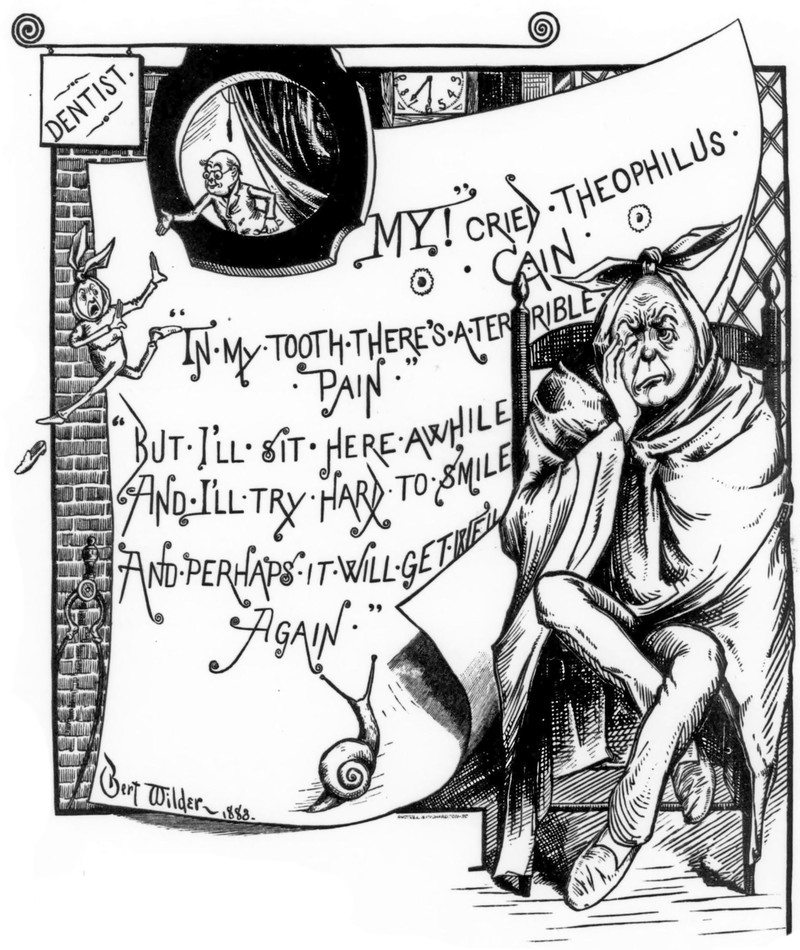 DENTIST.
"MY! CRIED THEOPHILUS
CAIN
"IN MY TOOTH THERE'S A TERRIBLE
PAIN"
"BUT I'LL SIT HERE AWHILE
AND I'LL TRY HARD TO SMILE
AND PERHAPS IT WILL GET WELL
AGAIN."
Bert Wilder 1883.